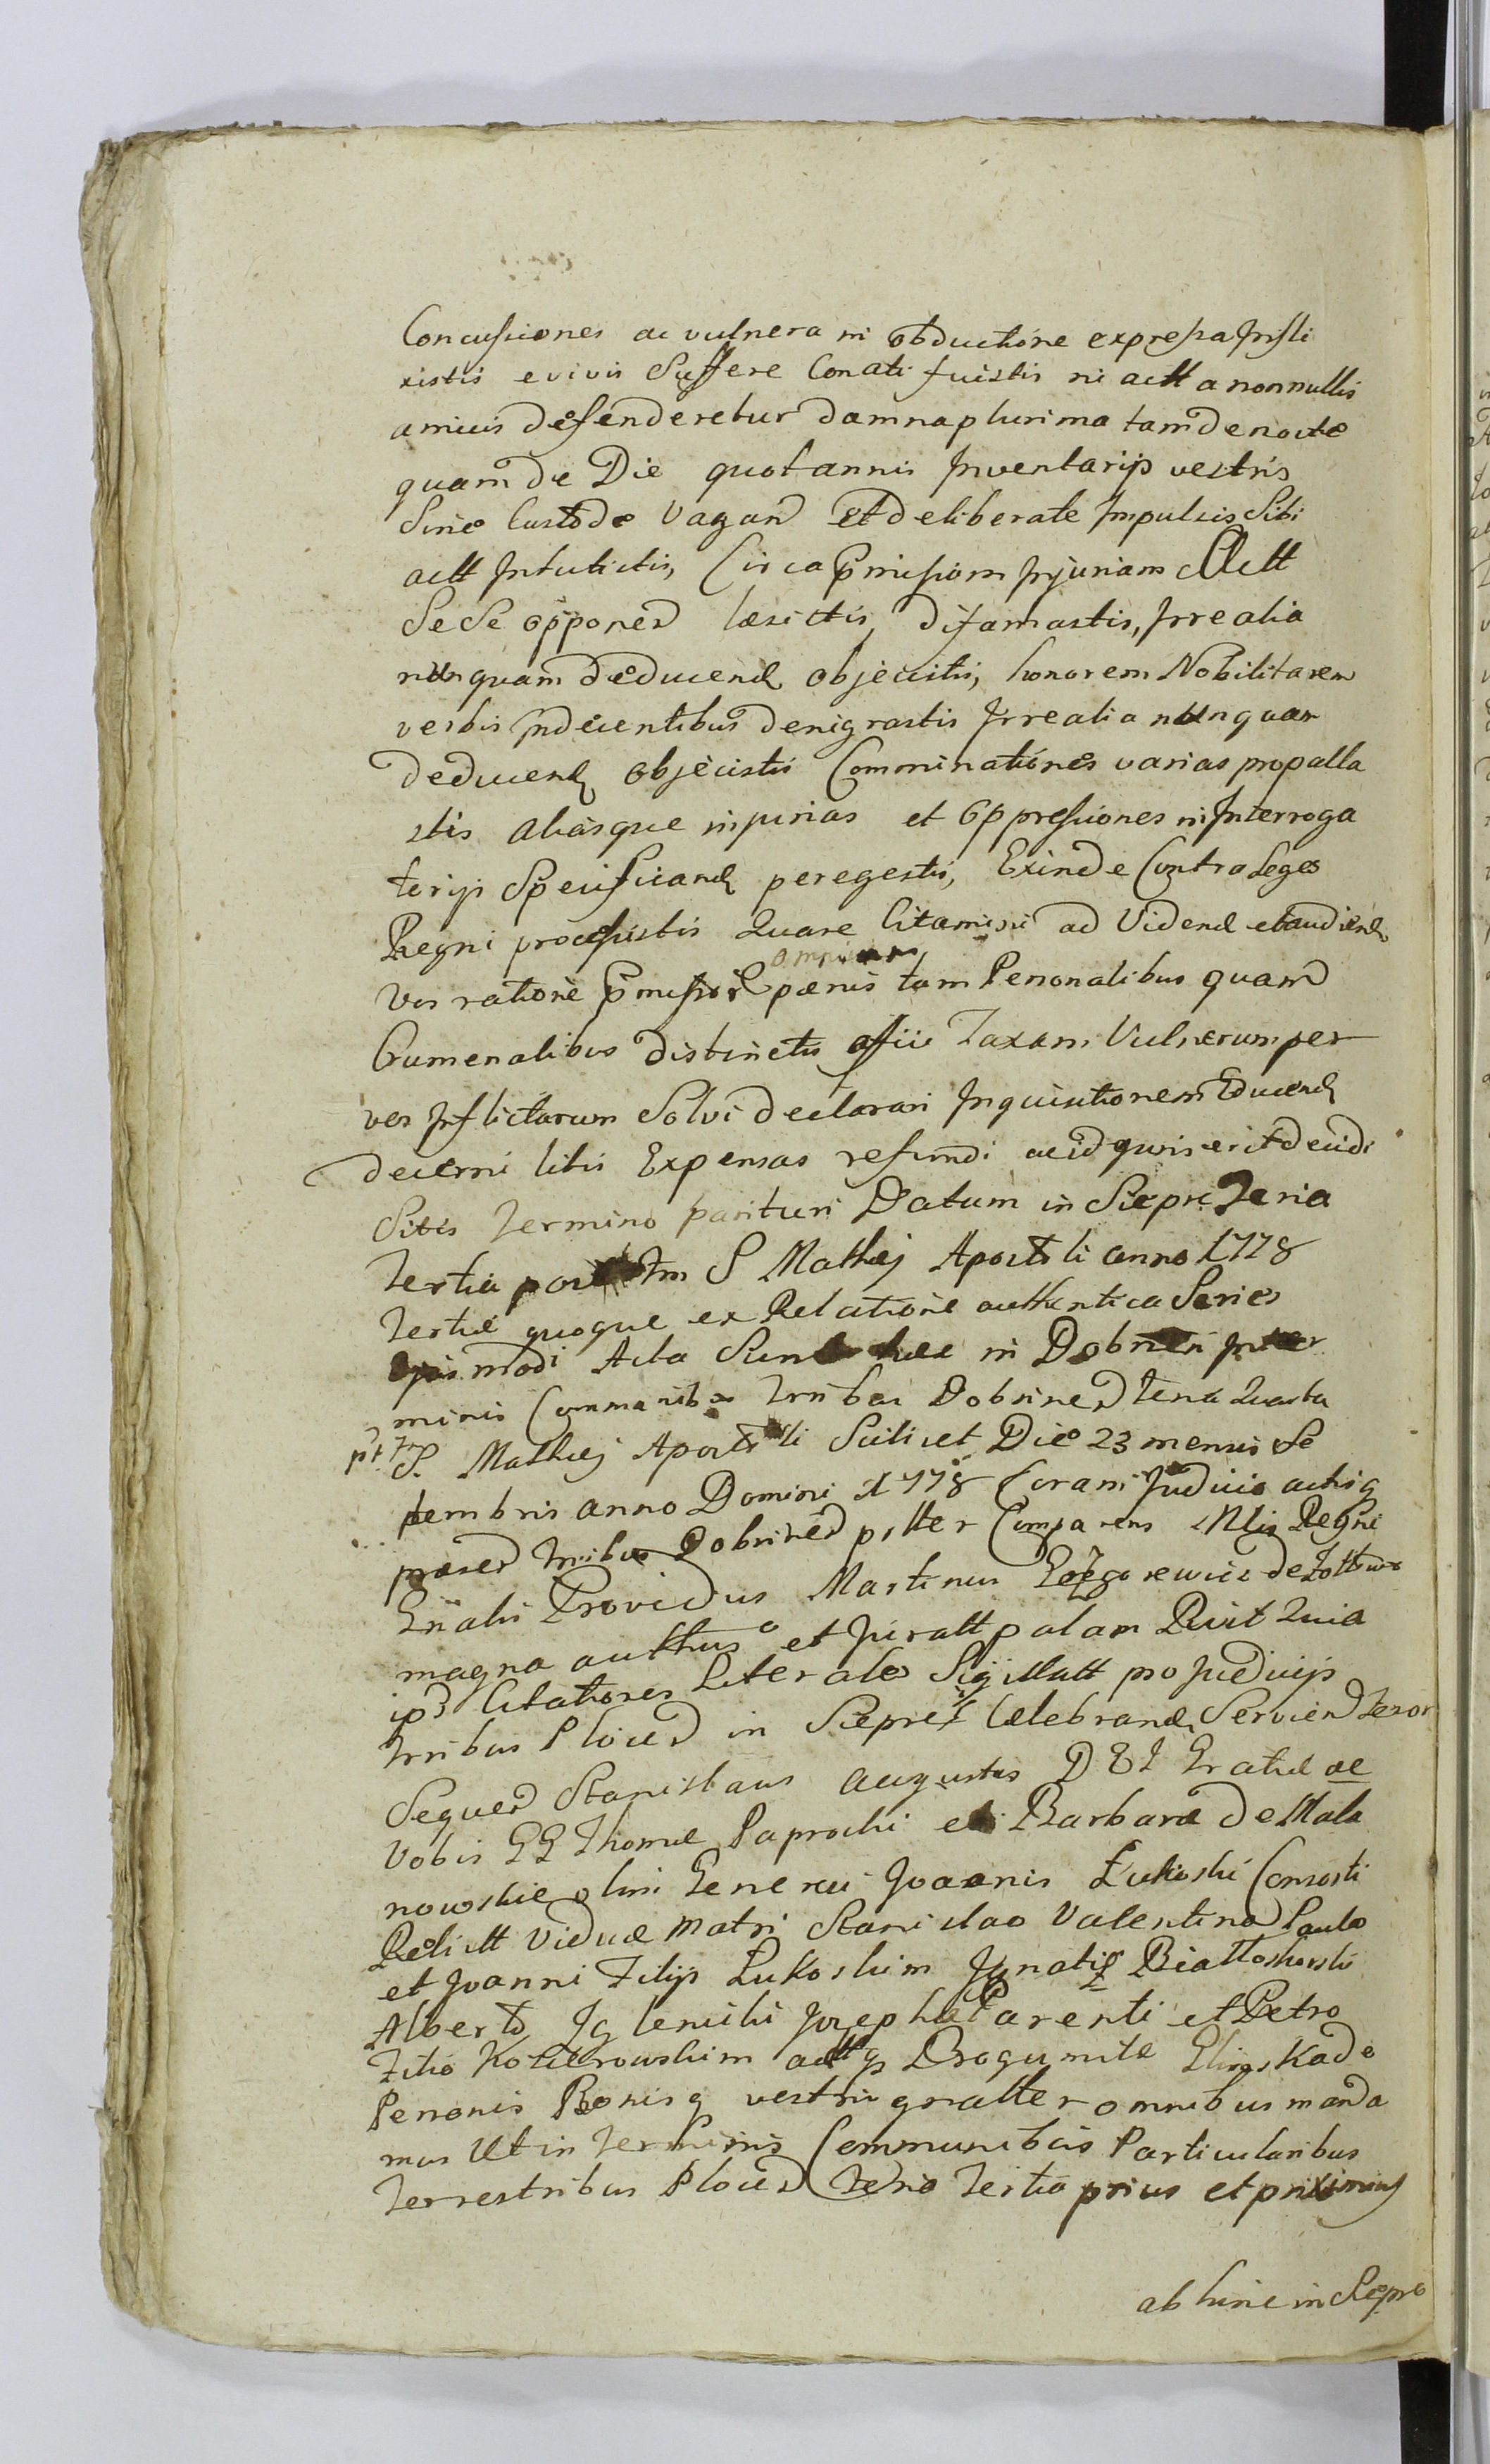 Concussiones ac vulnera in obductione expressa Infli
xistis e vivis Suffere Conati fuistis ni actt a nonnullis
amicis defenderetur damna plurima tam de nocte
quam de Die quotannis Inventarijs vestris
Sine Custode Vagan et deliberate Impulsis Sibi
actt Intulistis, Circa pmissam Injuriam Actt
Sese opponen læsistis, difamastis, Irrealia
nunquam deducend objecistis, honorem Nobilitarem
verbis Indecentibus denigrastis Irrealia nunquam
deducend objecistis Comminationes varias propalla
stis aliasque injurias et Oppressiones in Interroga
torijs Specificand peregestis, Exinde Contra Leges
Regni processistis Quare Citamini ad Vidend et audiend
Vos ratione pmissor pænis tam Personalibus quam
Crumenalibus distinctis affici Taxam Vulnerum per
vos Inflictarum Solvi declarari Inquisitionem Educend
decerni litis Expensas refundi ac id quis erit decidi
Sitis Termino parituri Datum in Siepr Feria
Tertia post Ftm S Mathæj Apostoli anno 1778
Tertiæ quoque ex Relatione authentica Series
ejus modi Acta Sunt hæc in Dobrzen in Ter
minis Communibus Trribus Dobrinen Feria Quarta
pt Ftm S. Mathæj Apostoli Scilicet Die 23 mensis Se
ptembris anno Domini 1778 Coram Judicio actisq
præsen Trribus Dobrinen psltter Comparens Mlis Regni
Gnalis Providus Martinus Grzegorewicz de Zottowo
magna autthus et Juratt palam Rcit Quia
ips Citationes Literales Sigillatt pro Judicijs
Trribus Plocen in Sieprc Celebrand Servien Tenor
Sequen Stanislaus Augustus D G Gratiæ ae
Vobis GG Thomæ Paprocki et Barbaræ de Mala
nowskie olim Generosi Joannis Łukoski Consorti
Relictt Viduæ Matri Stanislao Valentino Paulo
et Joanni Filijs Lukoskim Ignatij Białłoskorski
Alberto Iglenicki Josepho Parenti et Petro
Filio Kozierowskim acttq Drogumilæ Glinskade
Personis Bonisq vestris gnaltter omnibus manda
mus Ut in Terminis Communibus Particularibus
Terrestribus Plocen Feria Tertia prius et proxime
ab hinc in Siepre